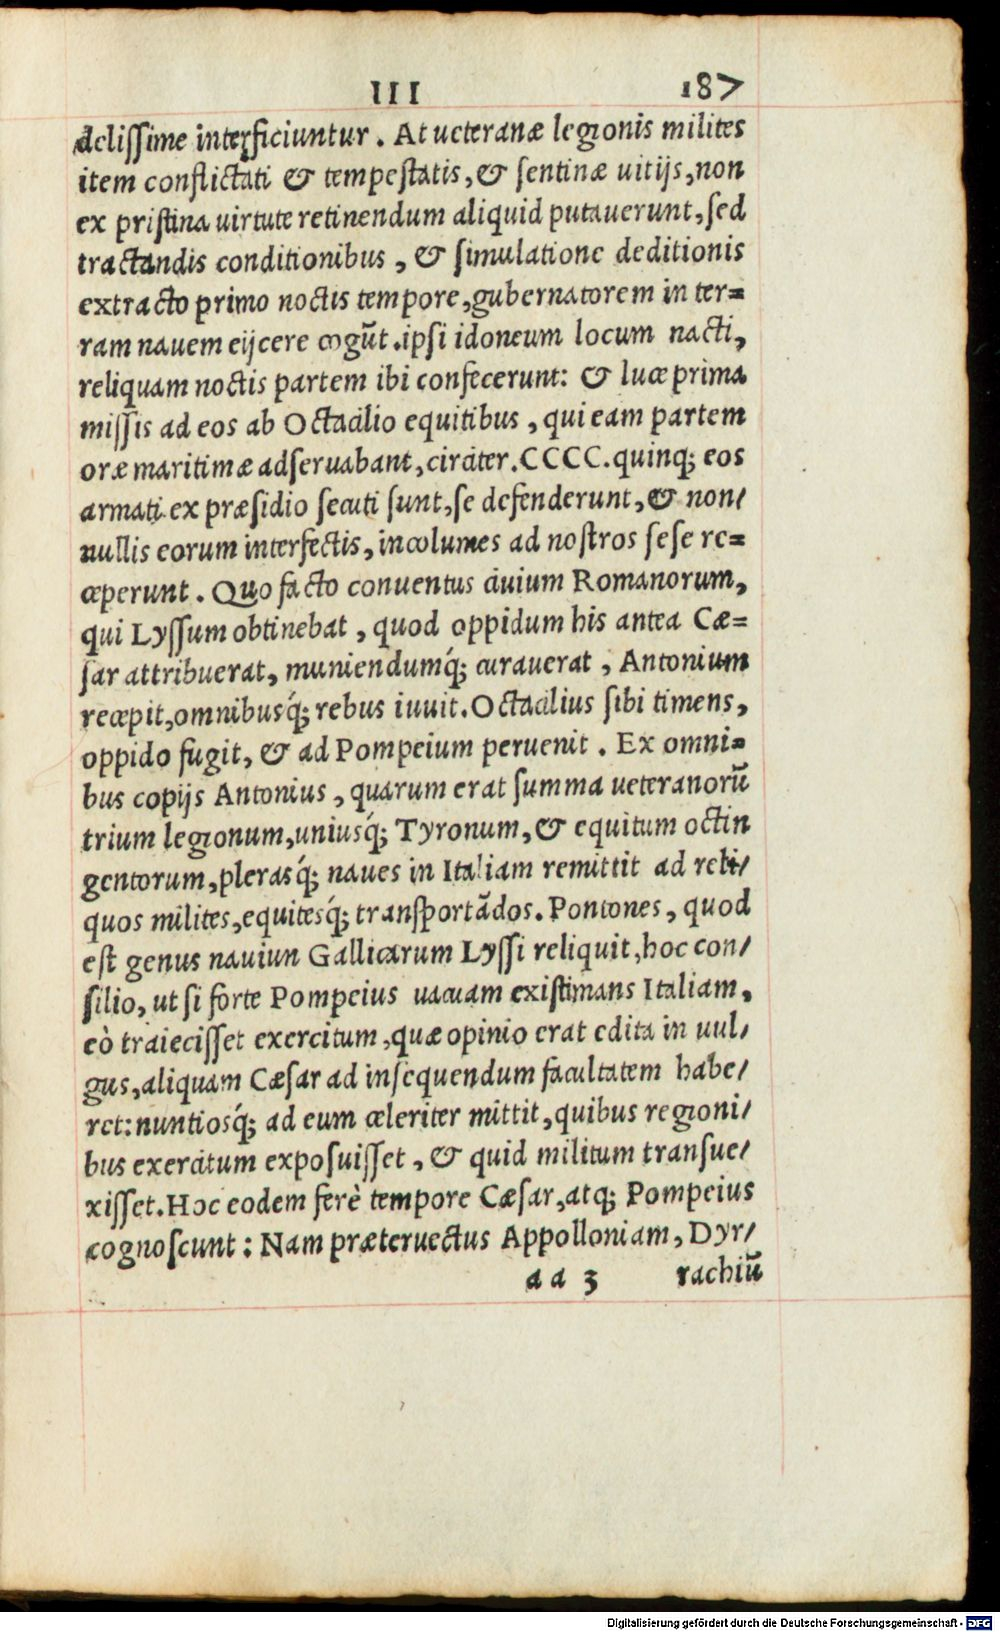 III 187
delissime interficiuntur. At ueteranæ legionis milites
item conflictati & tempestatis, & sentinæ uitijs, non
ex pristina uirtute retinendum aliquid putauerunt, sed
tractandis conditionibus, & simulatione deditionis
extracto primo noctis tempore, gubernatorem in ter=
ram nauem eijcere cogūt. ipsi idoneum locum nacti,
reliquam noctis partem ibi confecerunt: & luce prima
missis ad eos ab Octacilio equitibus, qui eam partem
oræ maritimæ adseruabant, circiter. CCCC. quinq; eos
armati ex præsidio secuti sunt, se defenderunt, & non/
nullis eorum interfectis, incolumes ad nostros sese re=
ceperunt. Quo facto conuentus ciuium Romanorum,
qui Lyssum obtinebat, quod oppidum his antea Cæ=
sar attribuerat, muniendumq́; curauerat, Antonium
recepit, omnibusq́; rebus iuuit. Octacilius sibi timens,
oppido fugit, & ad Pompeium peruenit. Ex omni=
bus copijs Antonius, quarum erat summa ueteranorū
trium legionum, uniusq́; Tyronum, & equitum octin
gentorum, plerasq́; naues in Italiam remittit ad reli/
quos milites, equitesq́; transportādos. Pontones, quod
est genus nauiun Gallicarum Lyssi reliquit, hoc con/
silio, ut si forte Pompeius uacuam existimans Italiam,
eò traiecisset exercitum, quæ opinio erat edita in uul/
gus, aliquam Cæsar ad insequendum facultatem habe/
ret: nuntiosq́; ad eum celeriter mittit, quibus regioni/
bus exercitum exposuisset, & quid militum transue/
xisset. Hoc eodem ferè tempore Cæsar, atq; Pompeius
cognoscunt: Nam præteruectus Appolloniam, Dyr/
aa 3 rachiū
Digitalisierung gefördert durch die Deutsche Forschungsgemeinschaft - DFG